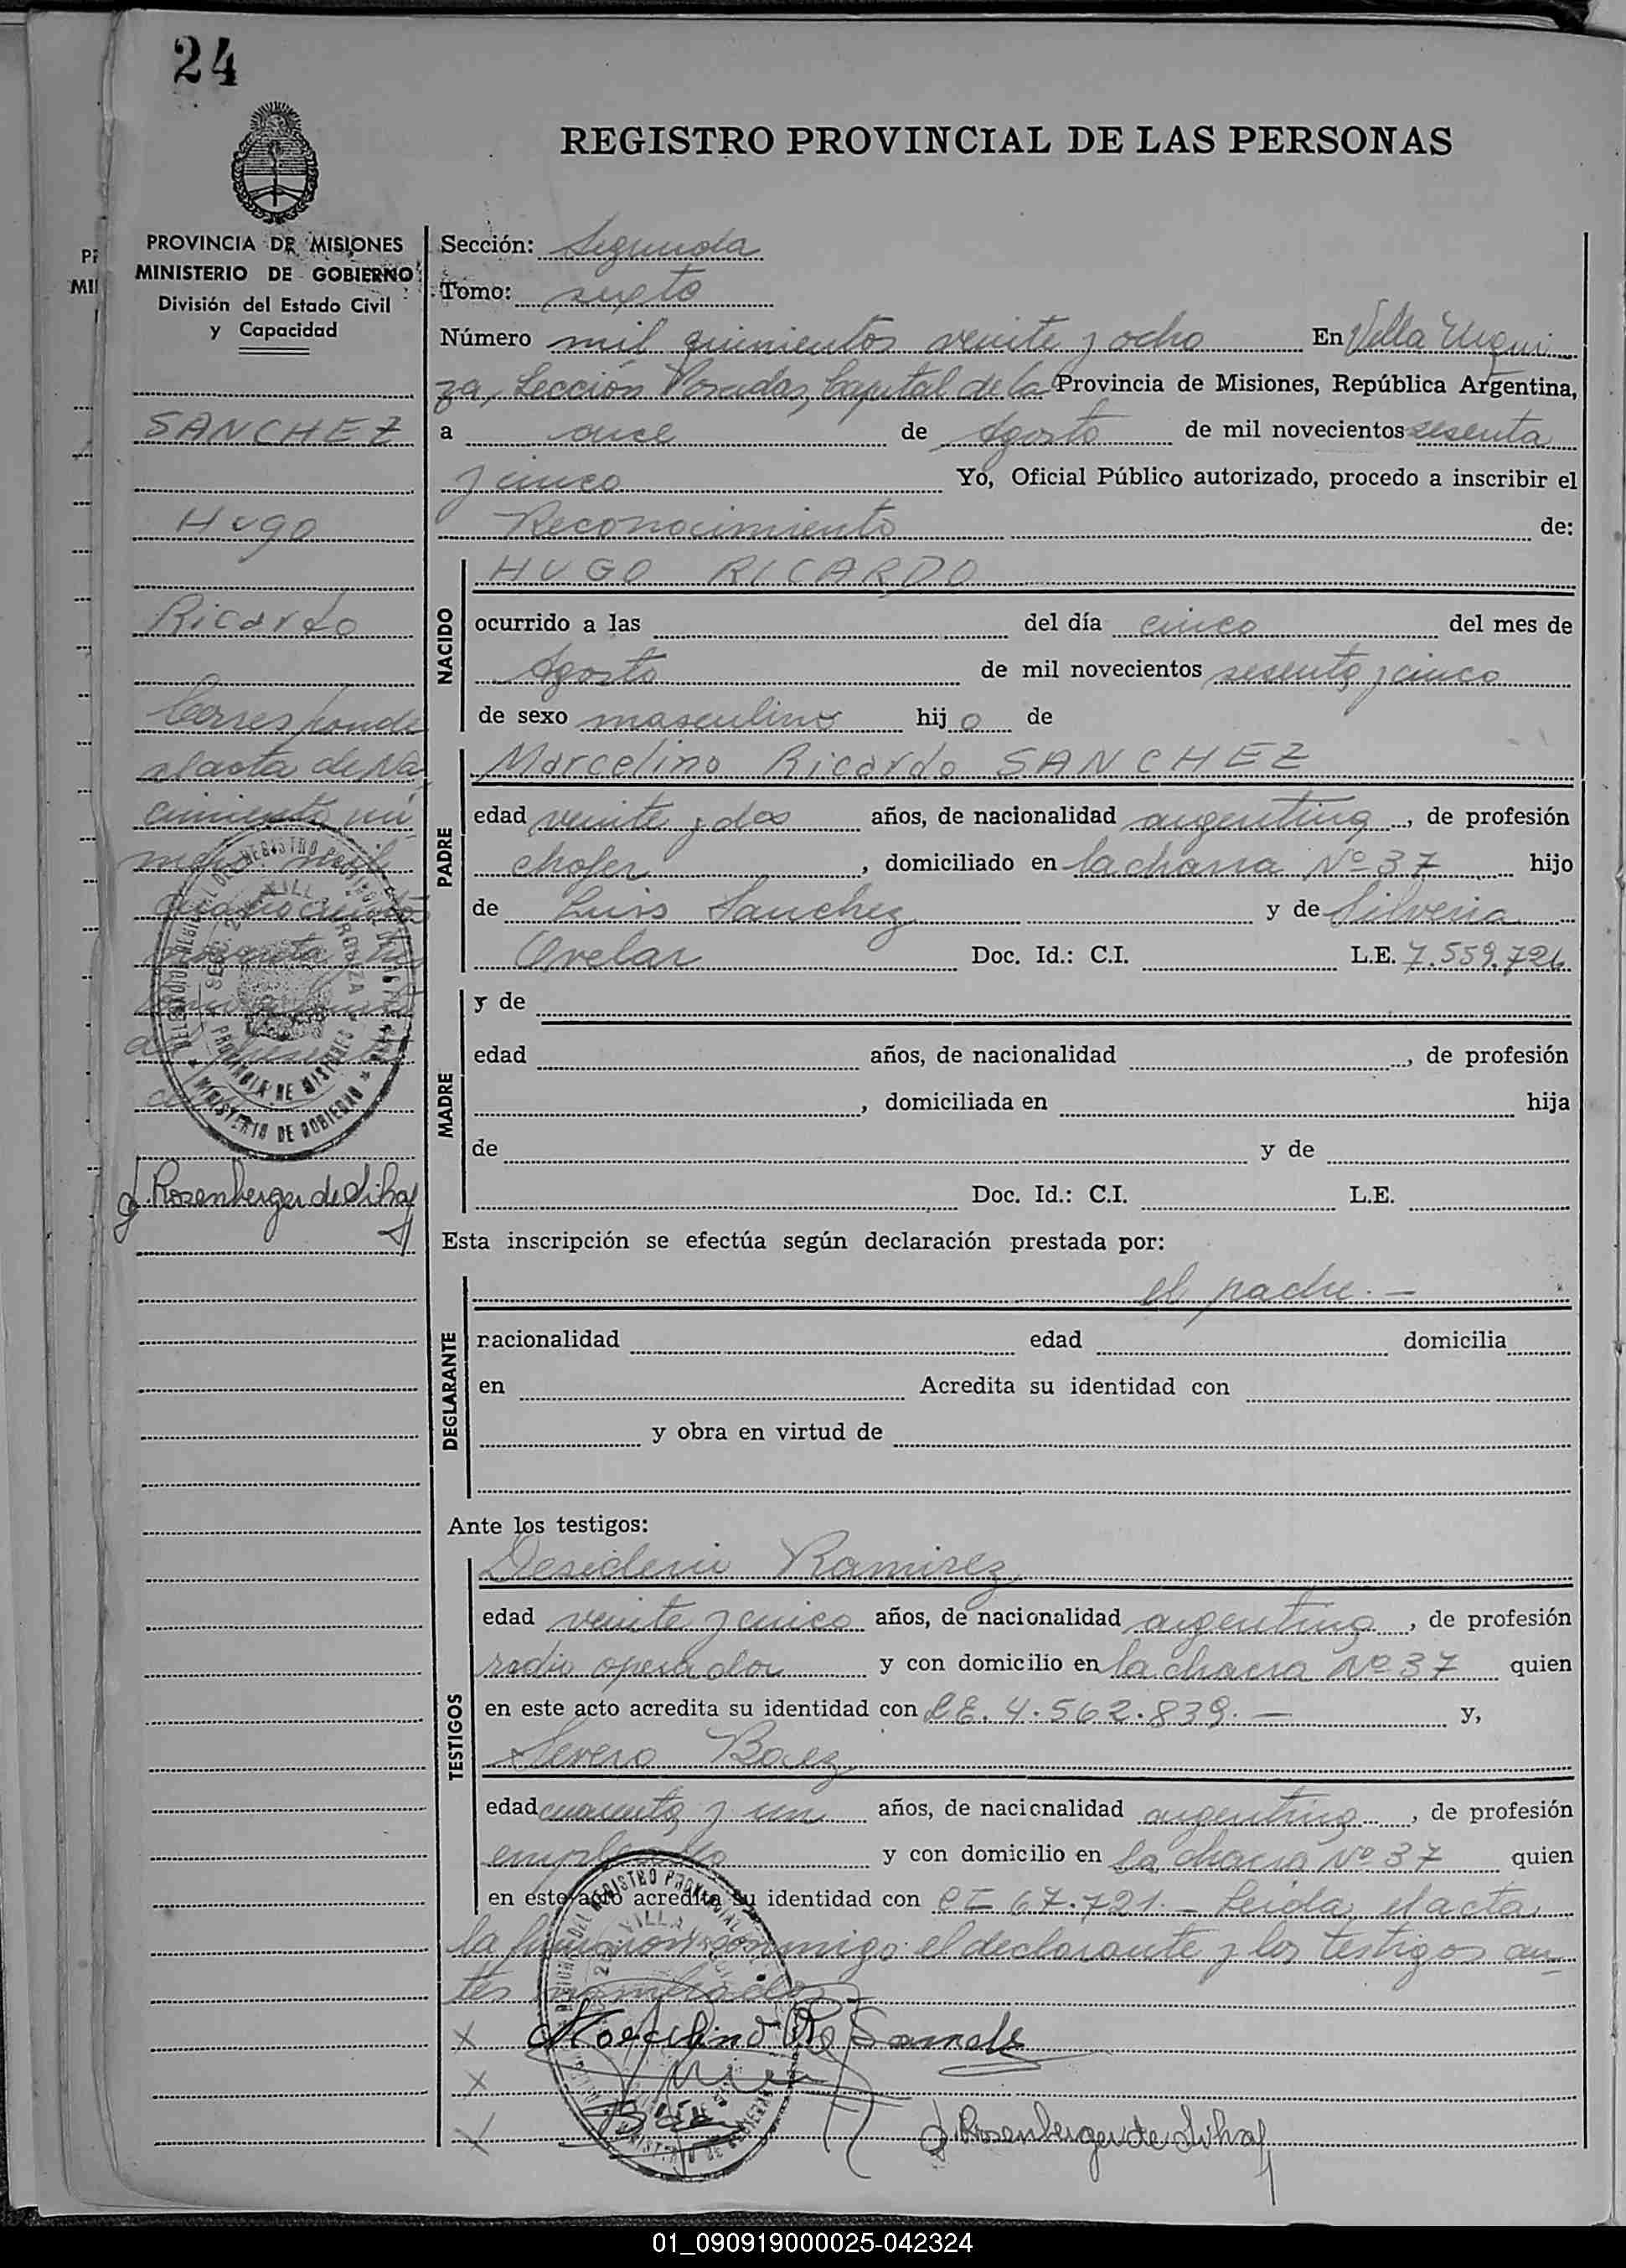 24
REGISTRO PROVINCIAL DE LAS PERSONAS
PROVINCIA DE MISIONES
MINISTERIO DE GOBIERNO
División del Estado Civil
y Capacidad
SANCHEZ
Hugo
Ricardo
Corresponde
al acta de Na
cimiento nú
mero mil
cuatrocientos
noventa y
J. Rosenberger de
Sección: Segunda
Tomo: sexto
Número mil quinientos veinte y ocho En Villa Urqui
za, Sección Posadas, Capital de la Provincia de Misiones, República Argentina,
a once de Agosto de mil novecientos sesenta
y cinco Yo, Oficial Público autorizado, procedo a inscribir el
Reconocimiento de:
NACIDO
HUGO RICARDO
ocurrido a las del día cinco del mes de
Agosto de mil novecientos sesenta y cinco
de sexo masculino hijo de
PADRE
Marcelino Ricardo SANCHEZ
edad veinte y dos años, de nacionalidad argentina, de profesión
chofer, domiciliado en la chacra Nº 37 hijo
de Luis Sanchez y de Silveria
Ovelar Doc. Id.: C.I. L.E. 7.559.724
MADRE
y de
edad años, de nacionalidad , de profesión
, domiciliada en hija
de y de
Doc. Id.: C.I. L.E.
Esta inscripción se efectúa según declaración prestada por:
DECLARANTE
el padre. —
nacionalidad edad domicilia
en Acredita su identidad con
y obra en virtud de
Ante los testigos:
TESTIGOS
Desiderio Ramirez
edad veinte y cinco años, de nacionalidad argentina, de profesión
radio operador y con domicilio en la chacra Nº 37 quien
en este acto acredita su identidad con LE. 4.562.839. — y,
Severo Baez
edad cuarenta y un años, de nacionalidad argentina, de profesión
empleado y con domicilio en la chacra Nº 37 quien
en este acto acredita su identidad con CI 67.721. — Leida, el acta
la firmaron conmigo el declarante y los testigos an
tes nombrados
Marcelino R. Sanchez
Baez
J. Rosenberger de
01_090919000025-042324